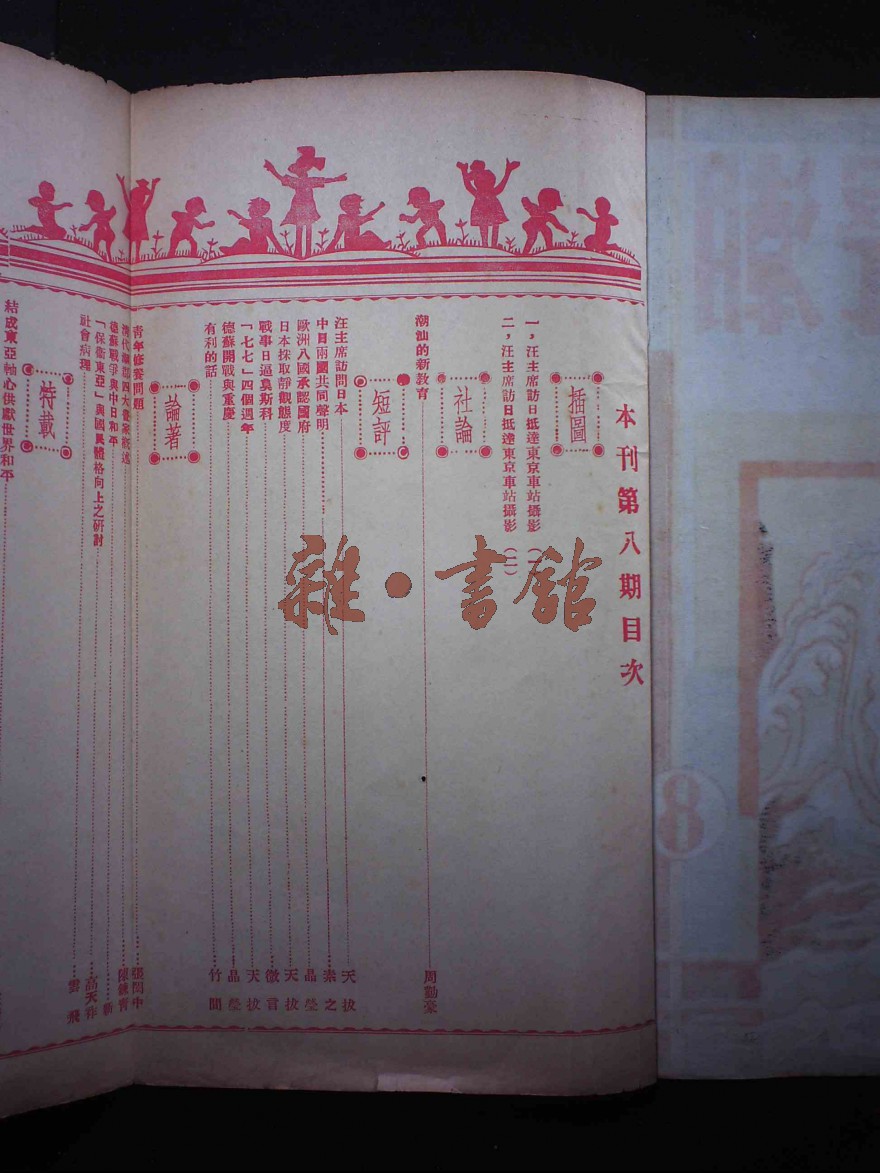 本刊第八期目次
插圖
一，汪主席訪日抵達東京車站攝影（一）
二，汪主席訪日抵達東京車站攝影（二）
社論
潮汕的新教育 周勤豪
短評
汪主席訪問日本 天拔
中日兩國共同聲明 素之
歐洲八國承認國府 品瑩
日本採取靜觀態度 天拔
戰事日逼莫斯科 微言
「七七」四個週年 天拔
德蘇開戰與重慶 品瑩
有利的話 竹間
論著
青年修養問題 張閩中
清代潮郡四大書家概述
德蘇戰爭與中日和平 新
「保衛東亞」與國民體格向上之研討 高天祥
社會病理 雲飛
特載
結成東亞軸心供獻世界和平
潮
8
雜·書館